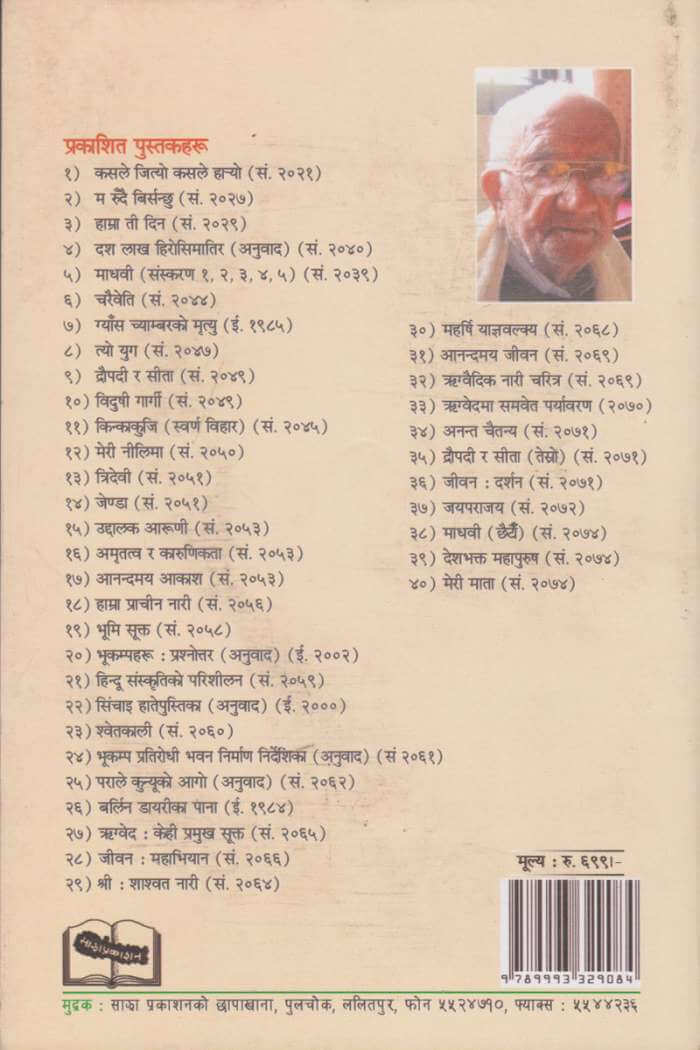 प्रकाशित पुस्तकहरू
१) कसले जित्यो कसले हार्‍यो (सं. २०२१)
२) म रुँदै बिर्सन्छु (सं. २०२७)
३) हाम्रा ती दिन (सं. २०२९)
४) दश लाख हिरोसिमातिर (अनुवाद) (सं. २०४०)
५) माधवी (संस्करण १, २, ३, ४, ५) (सं. २०३९)
६) चरैवेति (सं. २०४४)
७) ग्याँस च्याम्बरको मृत्यु (ई. १९८५)
८) त्यो युग (सं. २०४७)
९) द्रौपदी र सीता (सं. २०४९)
१०) विदुषी गार्गी (सं. २०४९)
११) किन्काकुजि (स्वर्ण विहार) (सं. २०४५)
१२) मेरी नीलिमा (सं. २०५०)
१३) त्रिदेवी (सं. २०५१)
१४) जेण्डा (सं. २०५१)
१५) उद्दालक आरूणी (सं. २०५३)
१६) अमृतत्व र कारुणिकता (सं. २०५३)
१७) आनन्दमय आकाश (सं. २०५३)
१८) हाम्रा प्राचीन नारी (सं. २०५६)
१९) भूमि सूक्त (सं. २०५८)
२०) भूकम्पहरू : प्रश्नोत्तर (अनुवाद) (ई. २००२)
२१) हिन्दू संस्कृतिको परिशीलन (सं. २०५९)
२२) सिंचाइ हातेपुस्तिका (अनुवाद) (ई. २०००)
२३) श्वेतकाली (सं. २०६०)
२४) भूकम्प प्रतिरोधी भवन निर्माण निर्देशिका (अनुवाद) (सं २०६१)
२५) पराले कुन्यूको आगो (अनुवाद) (सं. २०६२)
२६) बर्लिन डायरीका पाना (ई. १९८४)
२७) ऋग्वेद : केही प्रमुख सूक्त (सं. २०६५)
२८) जीवन : महाभियान (सं. २०६६)
२९) श्री : शाश्वत नारी (सं. २०६४)
३०) महर्षि याज्ञवल्क्य (सं. २०६८)
३१) आनन्दमय जीवन (सं. २०६९)
३२) ऋग्वैदिक नारी चरित्र (सं. २०६९)
३३) ऋग्वेदमा समवेत पर्यावरण (२०७०)
३४) अनन्त चैतन्य (सं. २०७१)
३५) द्रौपदी र सीता (तेस्रो) (सं. २०७१)
३६) जीवन : दर्शन (सं. २०७१)
३७) जयपराजय (सं. २०७२)
३८) माधवी (छैटौँ) (सं. २०७४)
३९) देशभक्त महापुरुष (सं. २०७४)
४०) मेरी माता (सं. २०७४)
मूल्य : रु. ६९९।-
9 789993 329084
साझा प्रकाशन
मुद्रक : साझा प्रकाशनको छापाखाना, पुलचोक, ललितपुर, फोन ५५२४७१०, फ्याक्स : ५५४४२३६